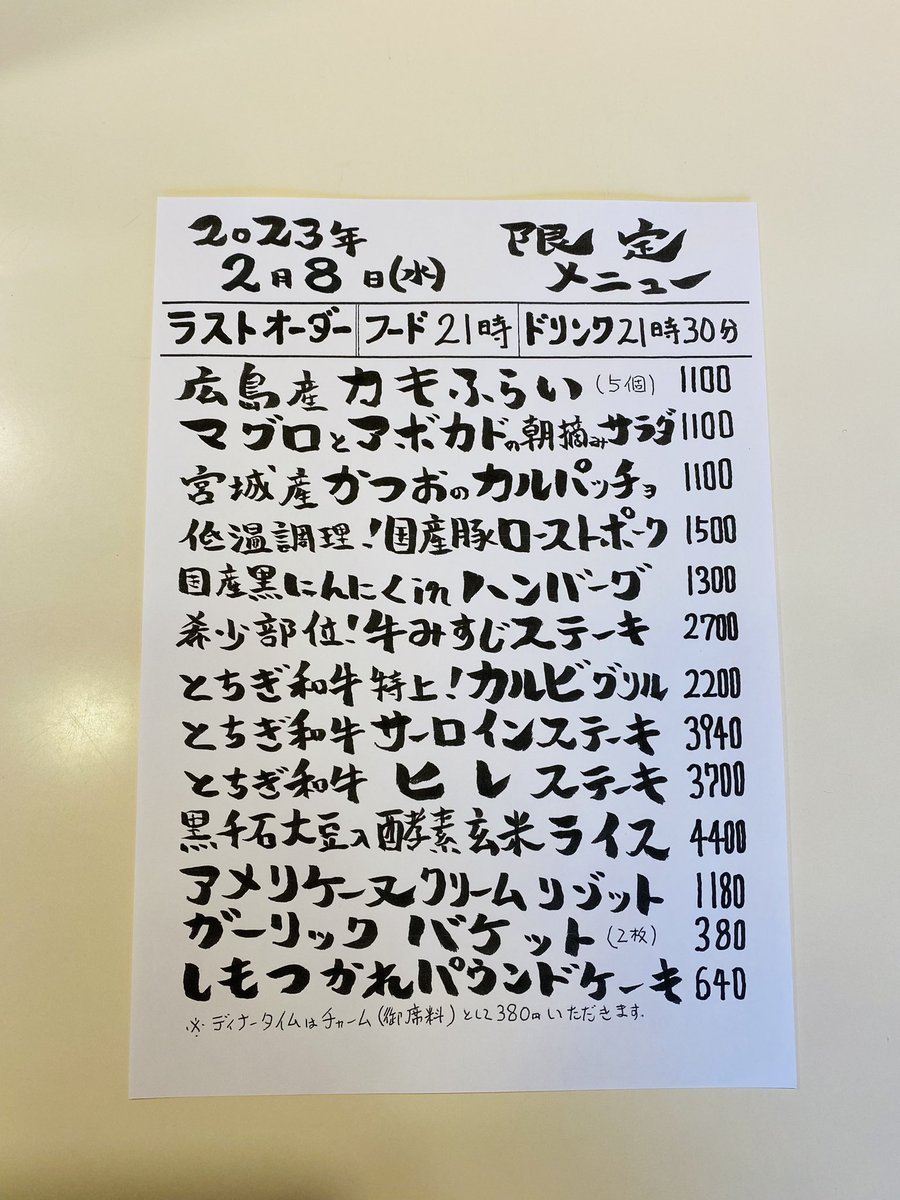 2023年
2月8日(水)
限定
メニュー
ラストオーダー フード21時 ドリンク21時30分
広島産カキふらい(5個) 1100
マグロとアボカドの朝摘みサラダ 1100
宮城産かつおのカルパッチョ 1100
低温調理!国産豚ローストポーク 1500
国産黒にんにくinハンバーグ 1300
希少部位!牛みすじステーキ 2700
とちぎ和牛特上!カルビグリル 2200
とちぎ和牛サーロインステーキ 3940
とちぎ和牛ヒレステーキ 3700
黒千石大豆入酵素玄米ライス 4400
アメリケーヌクリームリゾット 1180
ガーリックバケット(2枚) 380
しもつかれパウンドケーキ 640
※ディナータイムはチャーム(御席料)として380円いただきます.